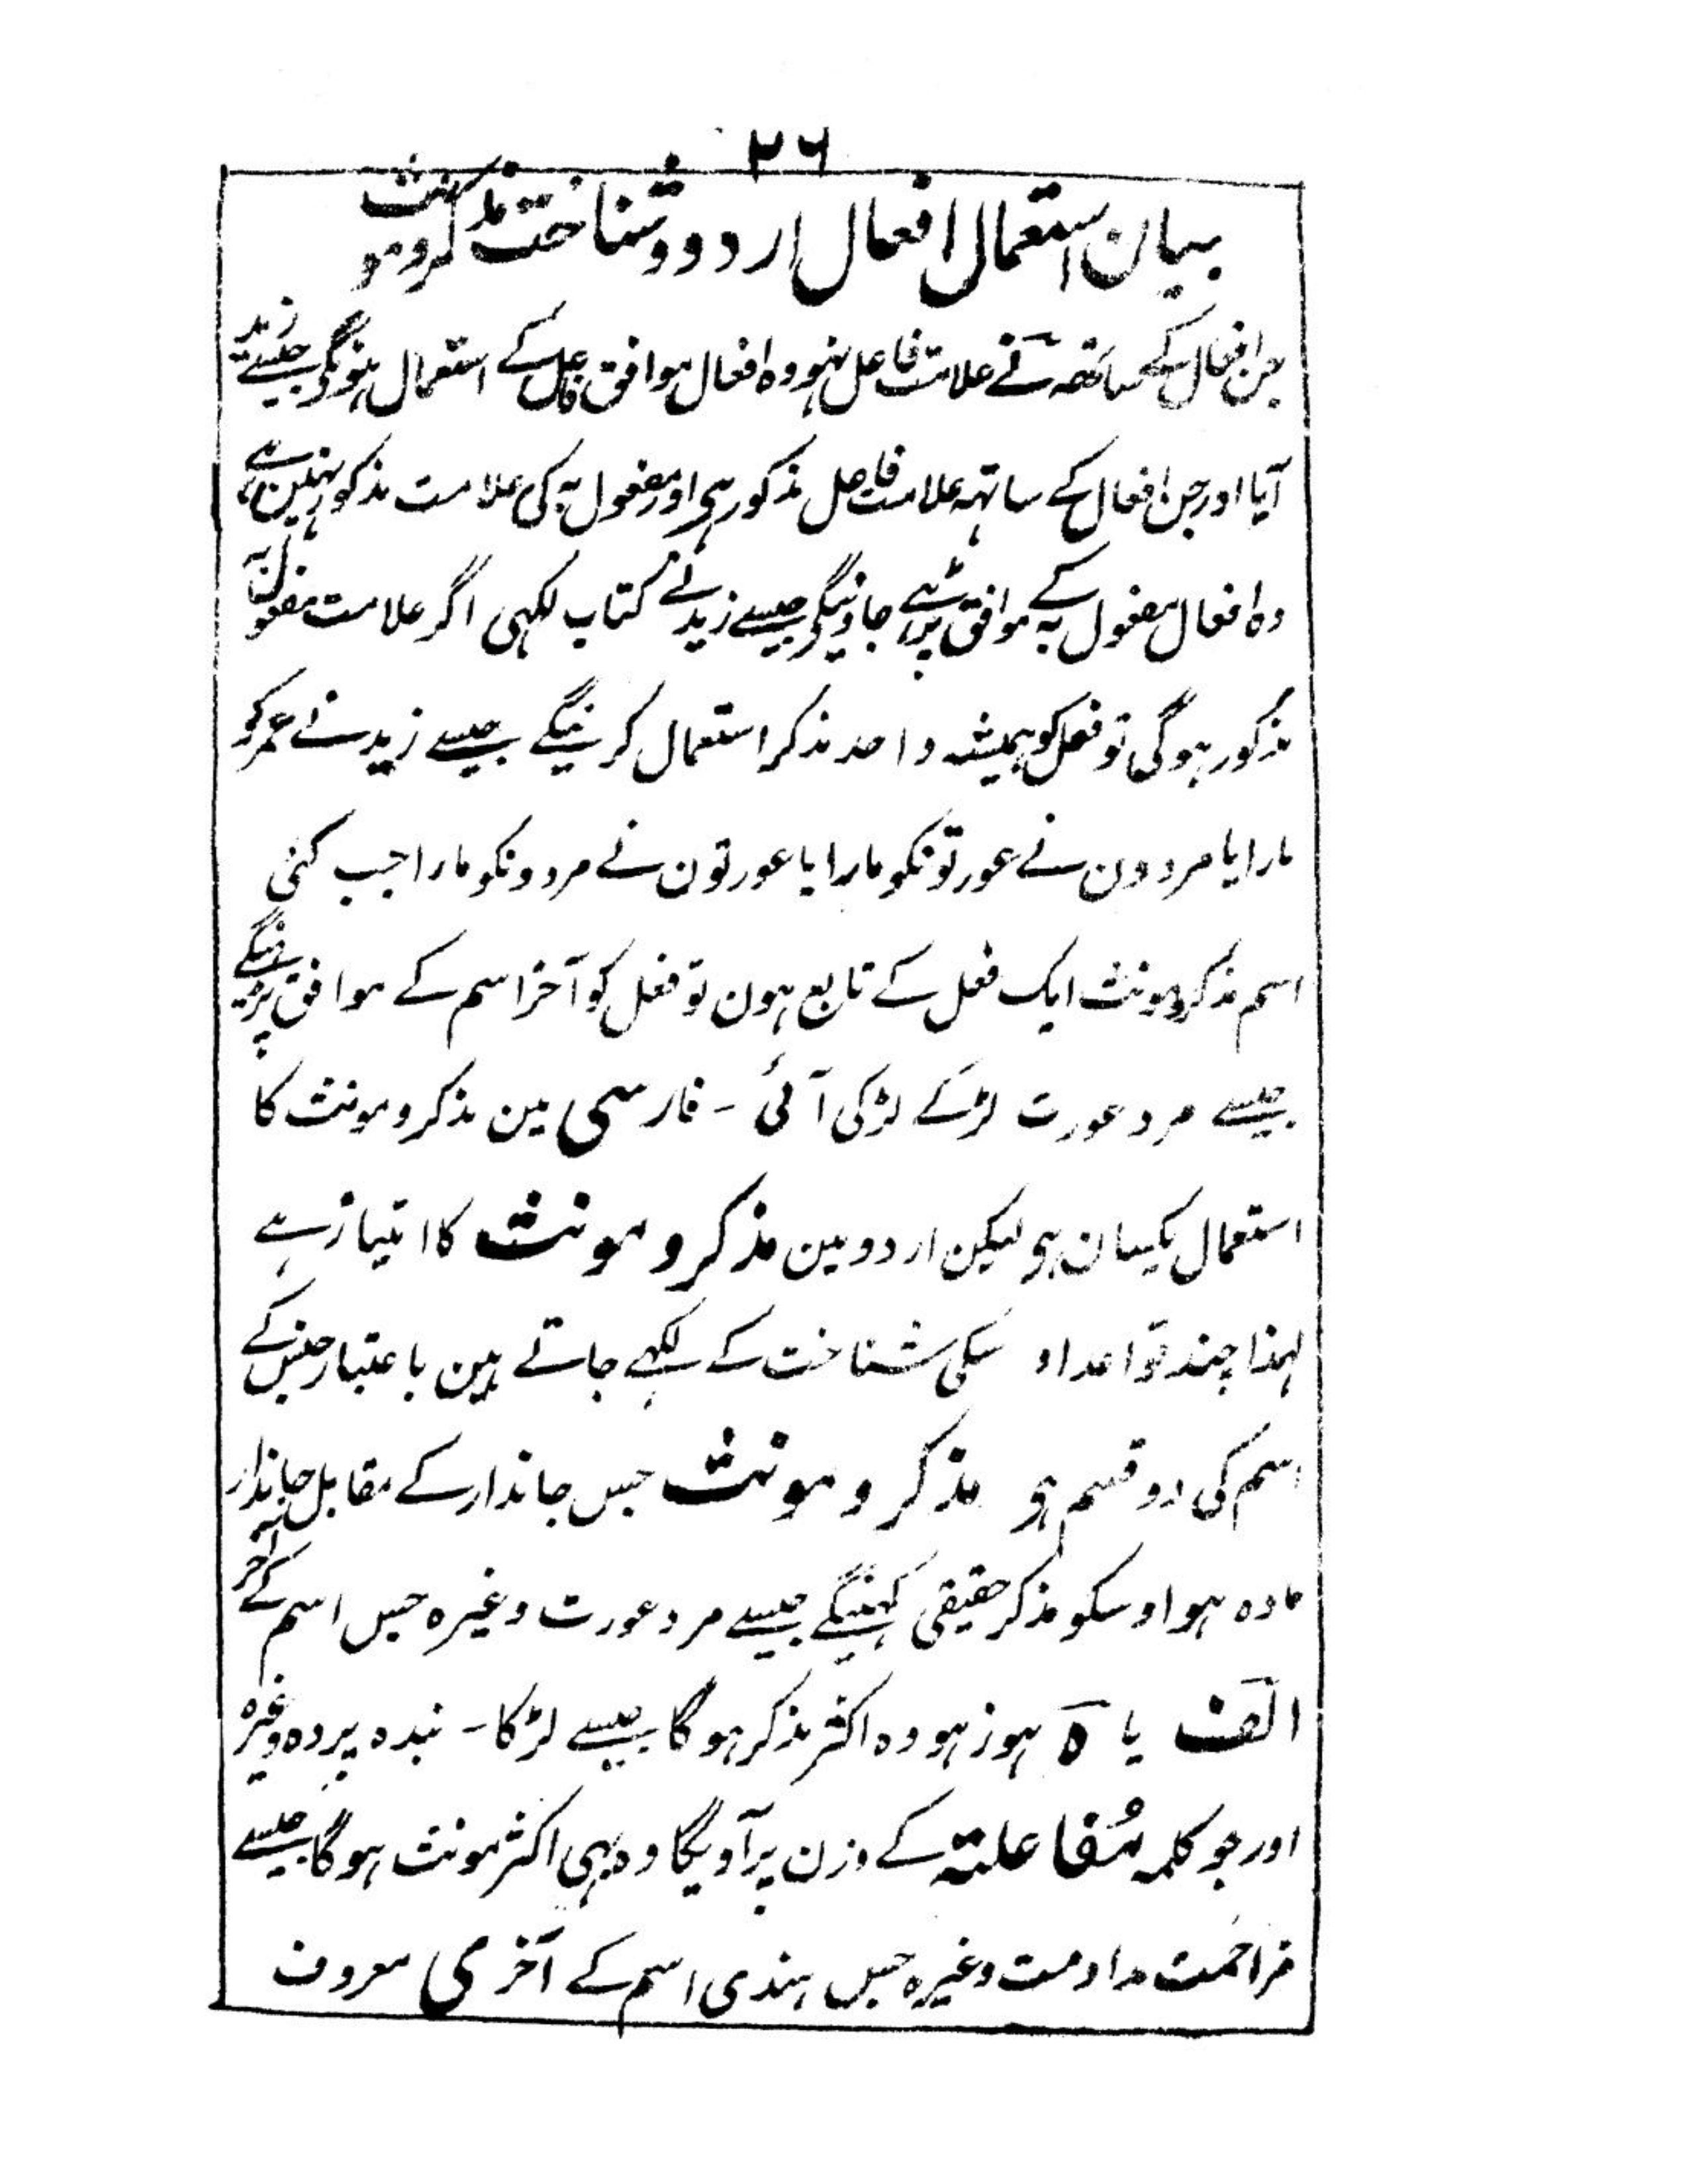 ۲۶
بیان استعمال افعال اردو و شناخت مذکر و مونث
جن افعال کے ساتھہ نے علامت فاعل نہو وہ افعال موافق فاعل کے استعمال ہونگے جیسے زید
آیا اور جن افعال کے ساتہہ علامت فاعل مذکور ہی اور مفعول بہ کی علامت مذکور نہین ہے
وہ افعال مفعول بہ کے موافق پڑہے جاوینگے جیسے زید نے کتاب لکہی اگر علامت مفعولیت
مذکور ہوگی تو فعل کو ہمیشہ واحد مذکر استعمال کرینگے جیسے زید نے عمر کو
مارا یا مردون نے عورتونکو مارا یا عورتون نے مردونکو مارا جب کئی
اسم مذکر و مونث ایک فعل کے تابع ہون تو فعل کو آخر اسم کے موافق پڑہینگے
جیسے مرد عورت لڑکے لڑکی آئی - فارسی مین مذکر و مونث کا
استعمال یکسان ہی لیکن اردو مین مذکر و مونث کا امتیاز ہے
لہذا چند قواعد اوسکی شناخت کے لکہے جاتے ہین باعتبار جنس کے
اسم کی دو قسم ہی مذکر و مونث جس جاندار کے مقابل جاندار
مادہ ہو اوسکو مذکر حقیقی کہینگے جیسے مرد عورت وغیرہ جس اسم کے آخر
الف یا ہ ہوز ہو وہ اکثر مذکر ہوگا جیسے لڑکا - بندہ پردہ وغیرہ
اور جو کلمہ مُفاعلتہ کے وزن پر آویگا وہ بہی اکثر مونث ہوگا جیسے
مزاحمت مداومت وغیرہ جس ہندی اسم کے آخر ی معروف